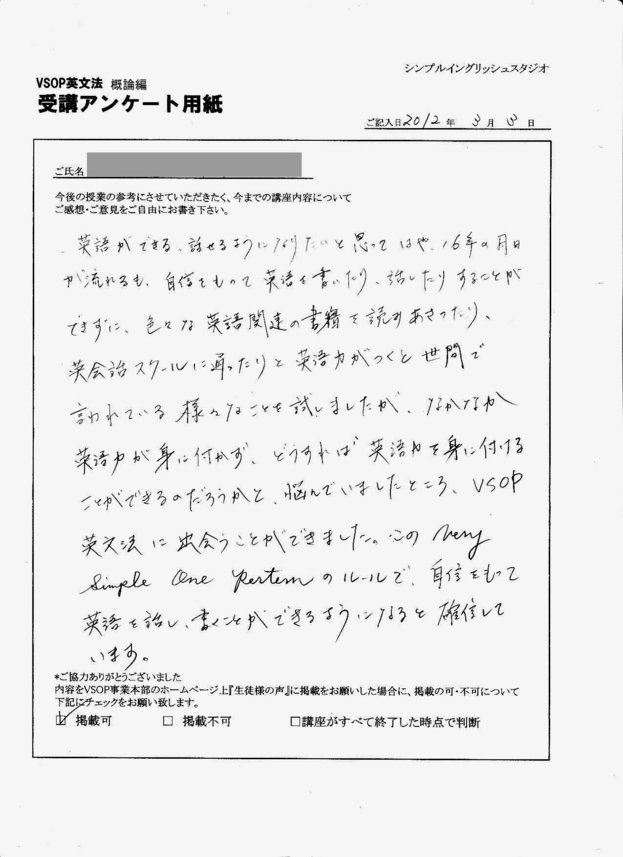 シンプルイングリッシュスタジオ
VSOP英文法 概論編
受講アンケート用紙
ご記入日2012年 3月13日
ご氏名
今後の授業の参考にさせていただきたく、今までの講座内容について
ご感想・ご意見をご自由にお書き下さい。
英語ができる、話せるようになりたいと思ってはや、16年の月日
が流れるも、自信をもって英語を書いたり、話したりすることが
できずに、色々な英語関連の書籍を読みあさったり、
英会話スクールに通ったりと英語力がつくと世間で
言われている様々なことを試しましたが、なかなか
英語力が身に付かず、どうすれば英語力を身に付ける
ことができるのだろうかと、悩んでいましたところ、VSOP
英文法に出会うことができました。この Very
Simple One Pattern のルールで、自信をもって
英語を話し、書くことができるようになると確信して
います。
*ご協力ありがとうございました
内容をVSOP事業本部のホームページ上『生徒様の声』に掲載をお願いした場合に、掲載の可・不可について
下記にチェックをお願い致します。
☑ 掲載可 □ 掲載不可 □講座がすべて終了した時点で判断